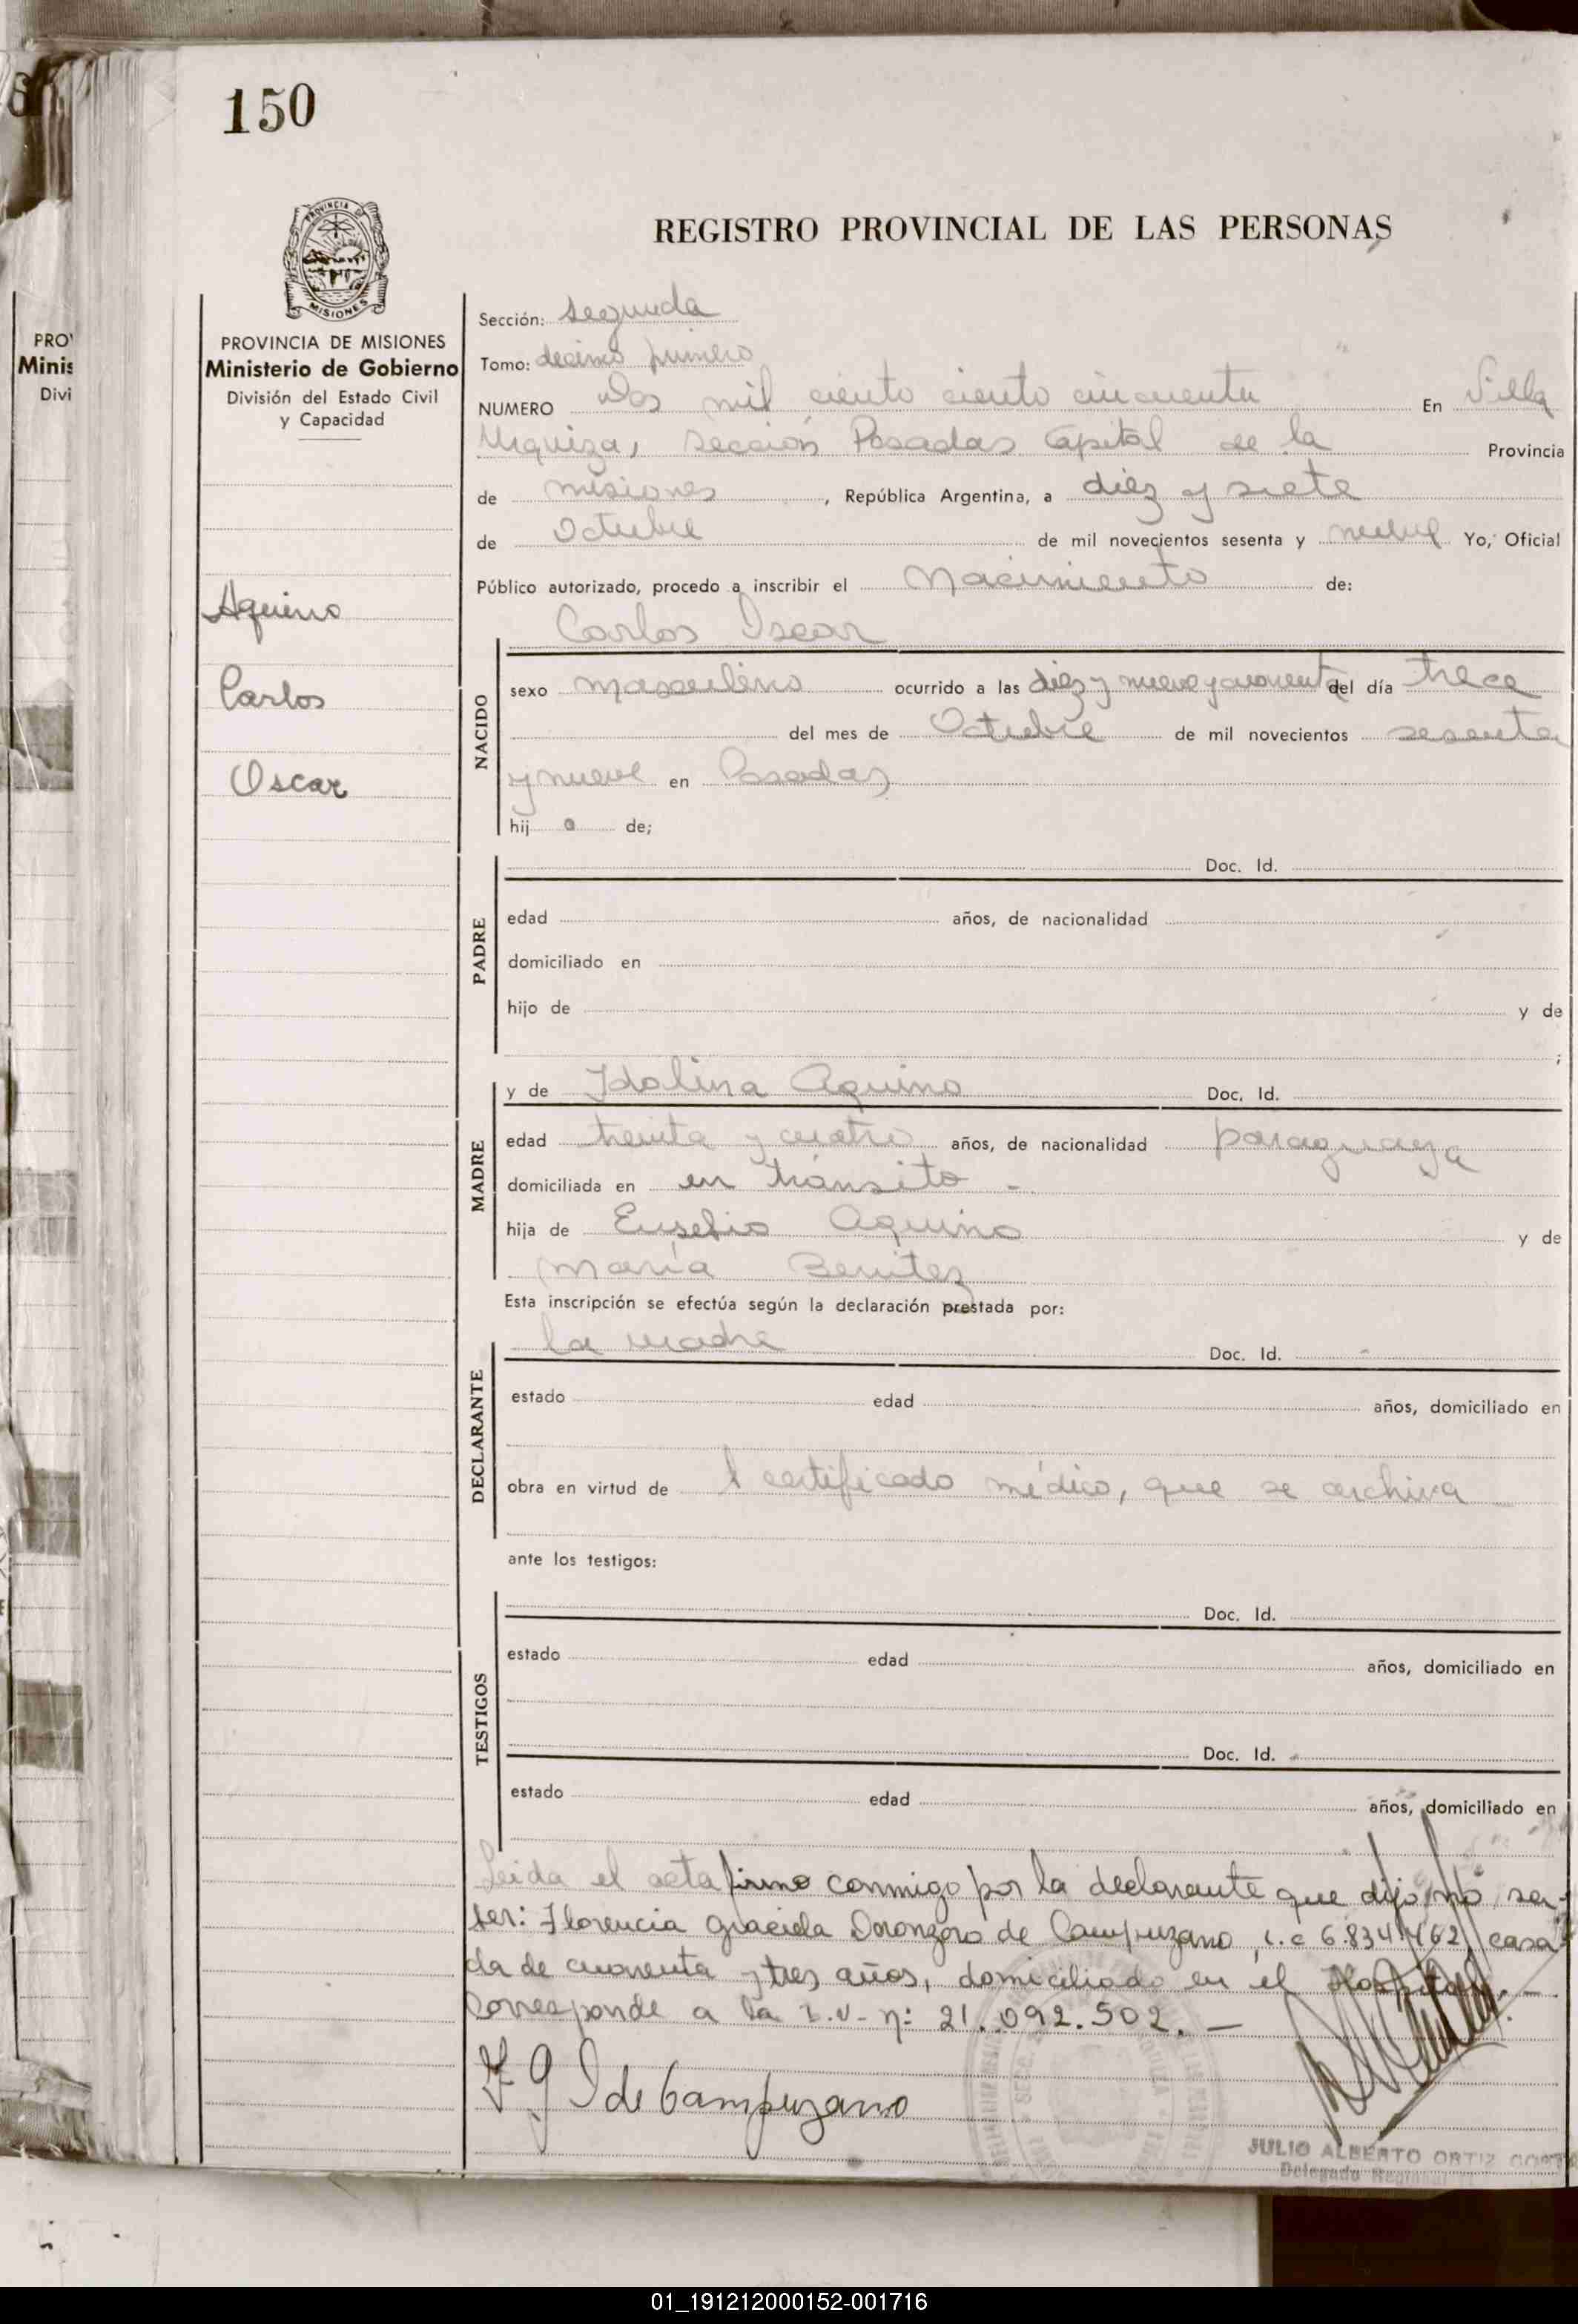 150
PROVINCIA DE
MISIONES
PROVINCIA DE MISIONES
Ministerio de Gobierno
División del Estado Civil
y Capacidad
Aquino
Carlos
Oscar
REGISTRO PROVINCIAL DE LAS PERSONAS
Sección: segunda
Tomo: decimo primero
NUMERO Dos mil ciento ciento cincuenta En Villa
Urquiza, sección Posadas Capital de la Provincia
de misiones, República Argentina, a diez y siete
de Octubre de mil novecientos sesenta y nueve Yo, Oficial
Público autorizado, procedo a inscribir el Nacimiento de:
Carlos Oscar
NACIDO
sexo masculino ocurrido a las diez y nueve y cuarenta del día trece
del mes de Octubre de mil novecientos sesenta
y nueve en Posadas
hij o de;
PADRE
Doc. Id.
edad años, de nacionalidad
domiciliado en
hijo de y de
;
MADRE
y de Idolina Aquino Doc. Id.
edad treinta y cuatro años, de nacionalidad paraguaya
domiciliada en en tránsito -
hija de Eusebio Aquino y de
María Benitez
Esta inscripción se efectúa según la declaración prestada por:
DECLARANTE
la madre Doc. Id.
estado edad años, domiciliado en
obra en virtud de l certificado médico, que se archiva
ante los testigos:
TESTIGOS
Doc. Id.
estado edad años, domiciliado en
Doc. Id.
estado edad años, domiciliado en
Leida el acta firmo conmigo por la declarante que dijo no sa-
ber: Florencia Graciela Doronzoro de Campuzano, L.C 6.834.462, casa-
da de cuarenta y tres años, domiciliado en el Hospital. -
Corresponde a la L.U- n: 21.092.502. -
F G D de Campuzano
JULIO ALBERTO ORTIZ
Delegado Regional
PRO
Minis
Divi
01_191212000152-001716